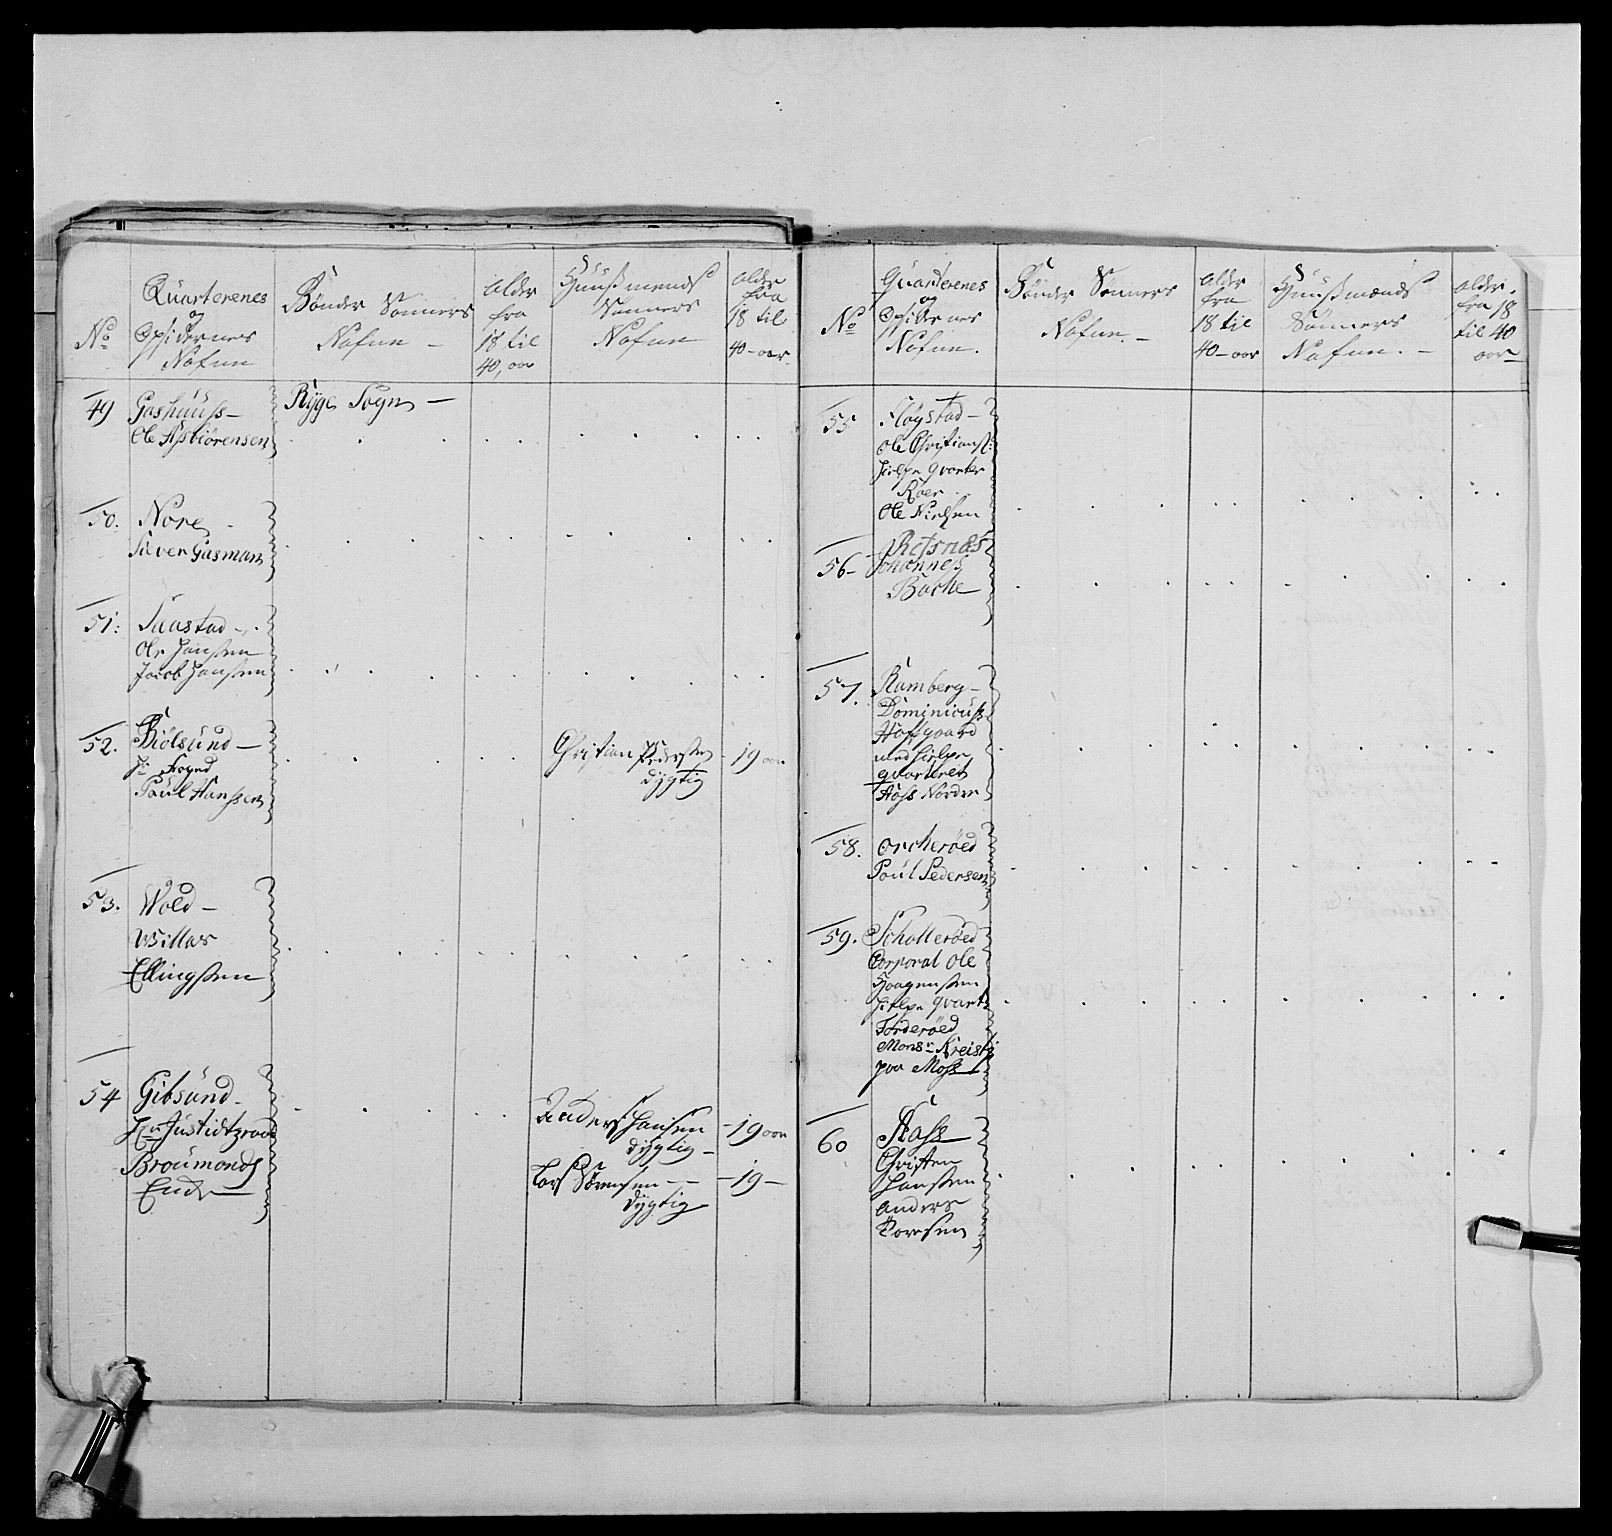 No
Quarterenes
og
Opsidernes
Nafne
Bönder Sönners
Nafne —
alder
fra
18 til
40, aar
Huusmends
Sönners
Nafne
alder
fra
18 til
40 - aar
49
Gashuuss —
Ole Asbiörensen
Rÿge Sogn —
50.
Nore
Siver Gasman
51:
Taastad —
Ole Hanssen
Jacob Hanssen
52.
Biölsund —
Hr Foged
Poul Hanssen
Christian Pedersen - 19 aar
dÿgtig
53.
Wold —
Willas
Ellingssen
54
Gibsund —
Hr Justidtzraad
Broumonds
Enke
Anders Hansen - 19 aar
dÿgtig —
Lars Sörensen — - 19 —
dÿgtig
No
Quarterenes
og
Opsidernes
Nafne.
Bönder Sönners
Nafne. —
alder
fra
18 til
40 - aar
Huusmænds
Sönners
Nafne. —
alder
fra 18
til 40
aar
55
Fløgstad —
Ole Christians:
Hielpe quarter
Röer
Ole Nielsen
56 —
Retsnæs
Johannes
Bache
57.
Ramberg —
Dominicuss
Hoffgaard
med hielpe
quarteret
Höss Nordre
58.
Orcheröed
Poul Pedersen
59.
Schalleröed
Corporal Ole
Haagenssen
Hielpe quart:
Torderöed
Monsr Kreist
paa Moss
60
Aass
Christen
Hanssen
Anders
Toresen